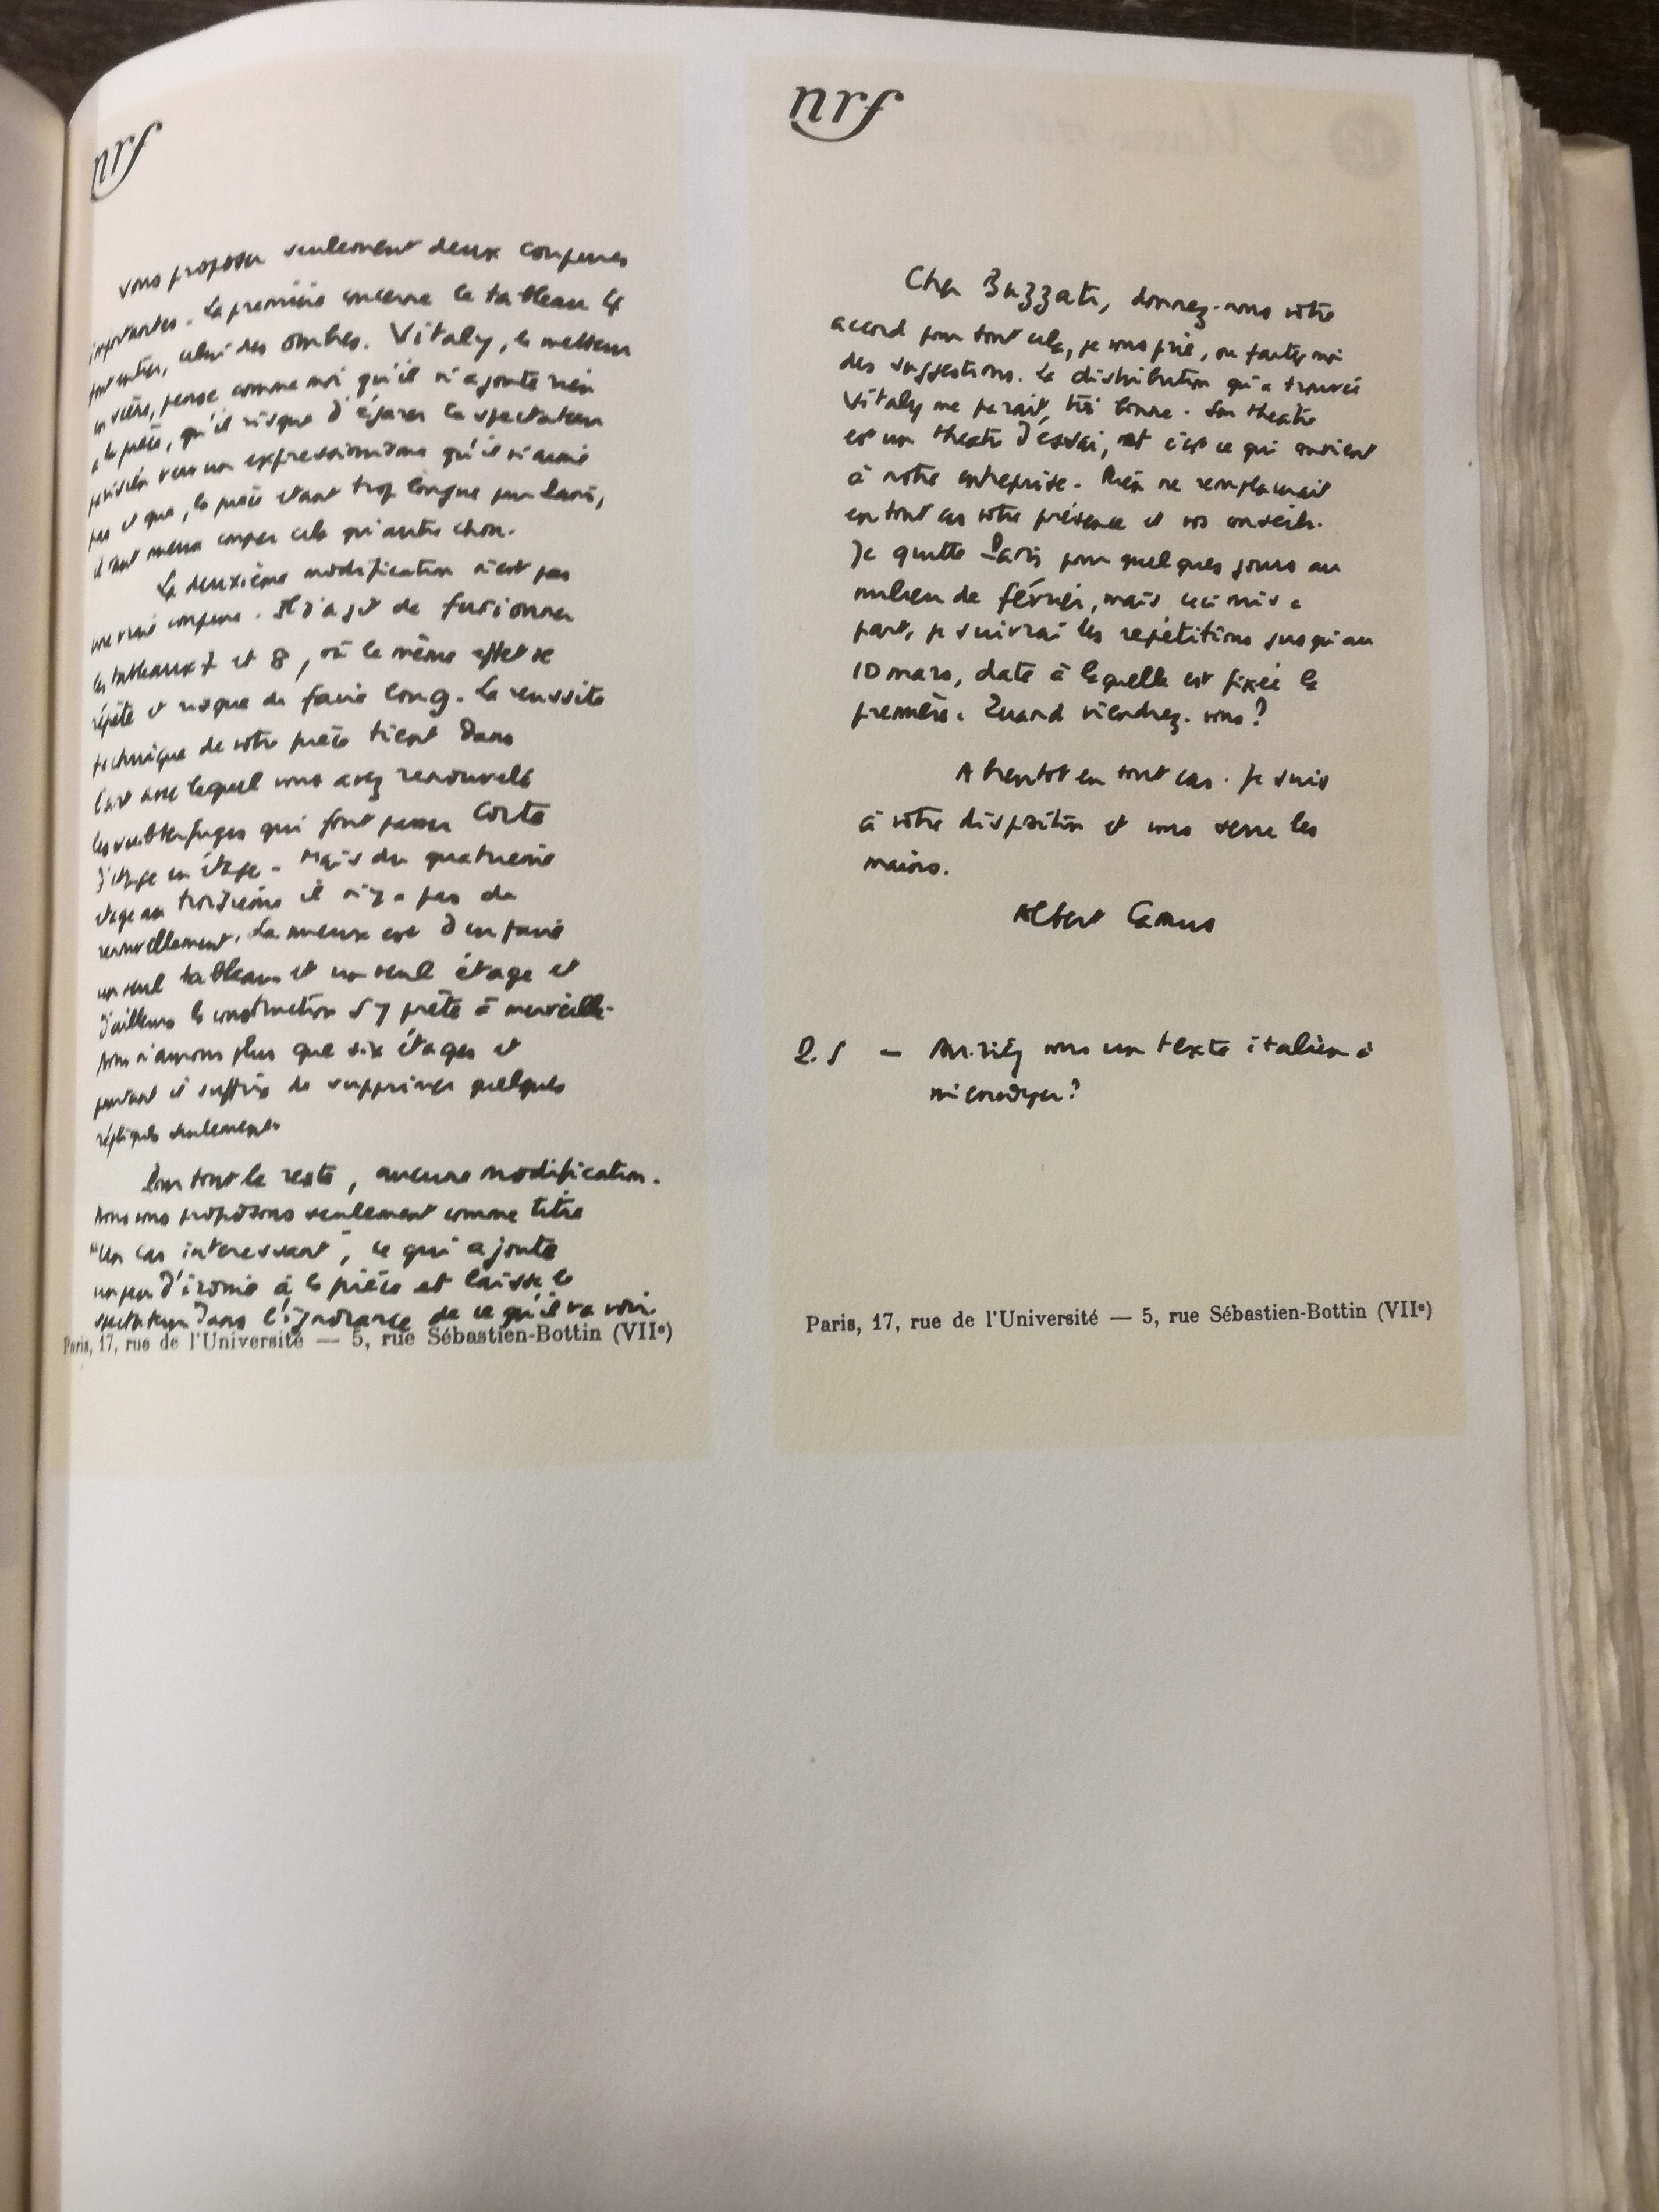 nrf
vous proposer seulement deux coupures
importantes. La première concerne le tableau 4
tout entier, celui des ombres. Vitaly, le metteur
en scène, pense comme moi qu'il n'ajoute rien
à la pièce, qu'il risque d'égarer le spectateur
parisien vers un expressionnisme qu'il n'aime
pas et que, la pièce étant trop longue pour Paris,
il vaut mieux couper cela qu'autre chose.
La deuxième modification n'est pas
une vraie coupure. Il s'agit de fusionner
les tableaux 7 et 8, où le même effet se
répète et risque de faire long. La réussite
technique de votre pièce tient dans
l'art avec lequel vous avez renouvelé
les subterfuges qui font passer Corte
d'étage en étage. Mais du quatrième
étage au troisième il n'y a pas de
renouvellement. Le mieux est d'en faire
un seul tableau et un seul étage et
d'ailleurs la construction s'y prête à merveille.
Nous n'aurons plus que six étages et
pourtant il suffira de supprimer quelques
répliques seulement.
Pour tout le reste, aucune modification.
Nous vous proposons seulement comme titre
"Un cas intéressant", ce qui ajoute
un peu d'ironie à la pièce et laisse le
spectateur dans l'ignorance de ce qu'il va voir.
Paris, 17, rue de l'Université — 5, rue Sébastien-Bottin (VIIe)
nrf
Cher Buzzati, donnez-nous votre
accord pour tout cela, je vous prie, ou faites moi
des suggestions. La distribution qu'a trouvée
Vitaly me parait très bonne. Son theatre
est un theatre d'essai, et c'est ce qui convient
à notre entreprise. Rien ne remplacerait
en tout cas votre présence et vos conseils.
Je quitte Paris pour quelques jours au
milieu de février, mais ceci mis à
part, je suivrai les répétitions jusqu'au
10 mars, date à laquelle est fixée la
première. Quand viendrez-vous?
A bientot en tout cas. Je suis
à votre disposition et vous serre les
mains.
Albert Camus
P.S — Auriez vous un texte italien à
m'envoyer?
Paris, 17, rue de l'Université — 5, rue Sébastien-Bottin (VIIe)